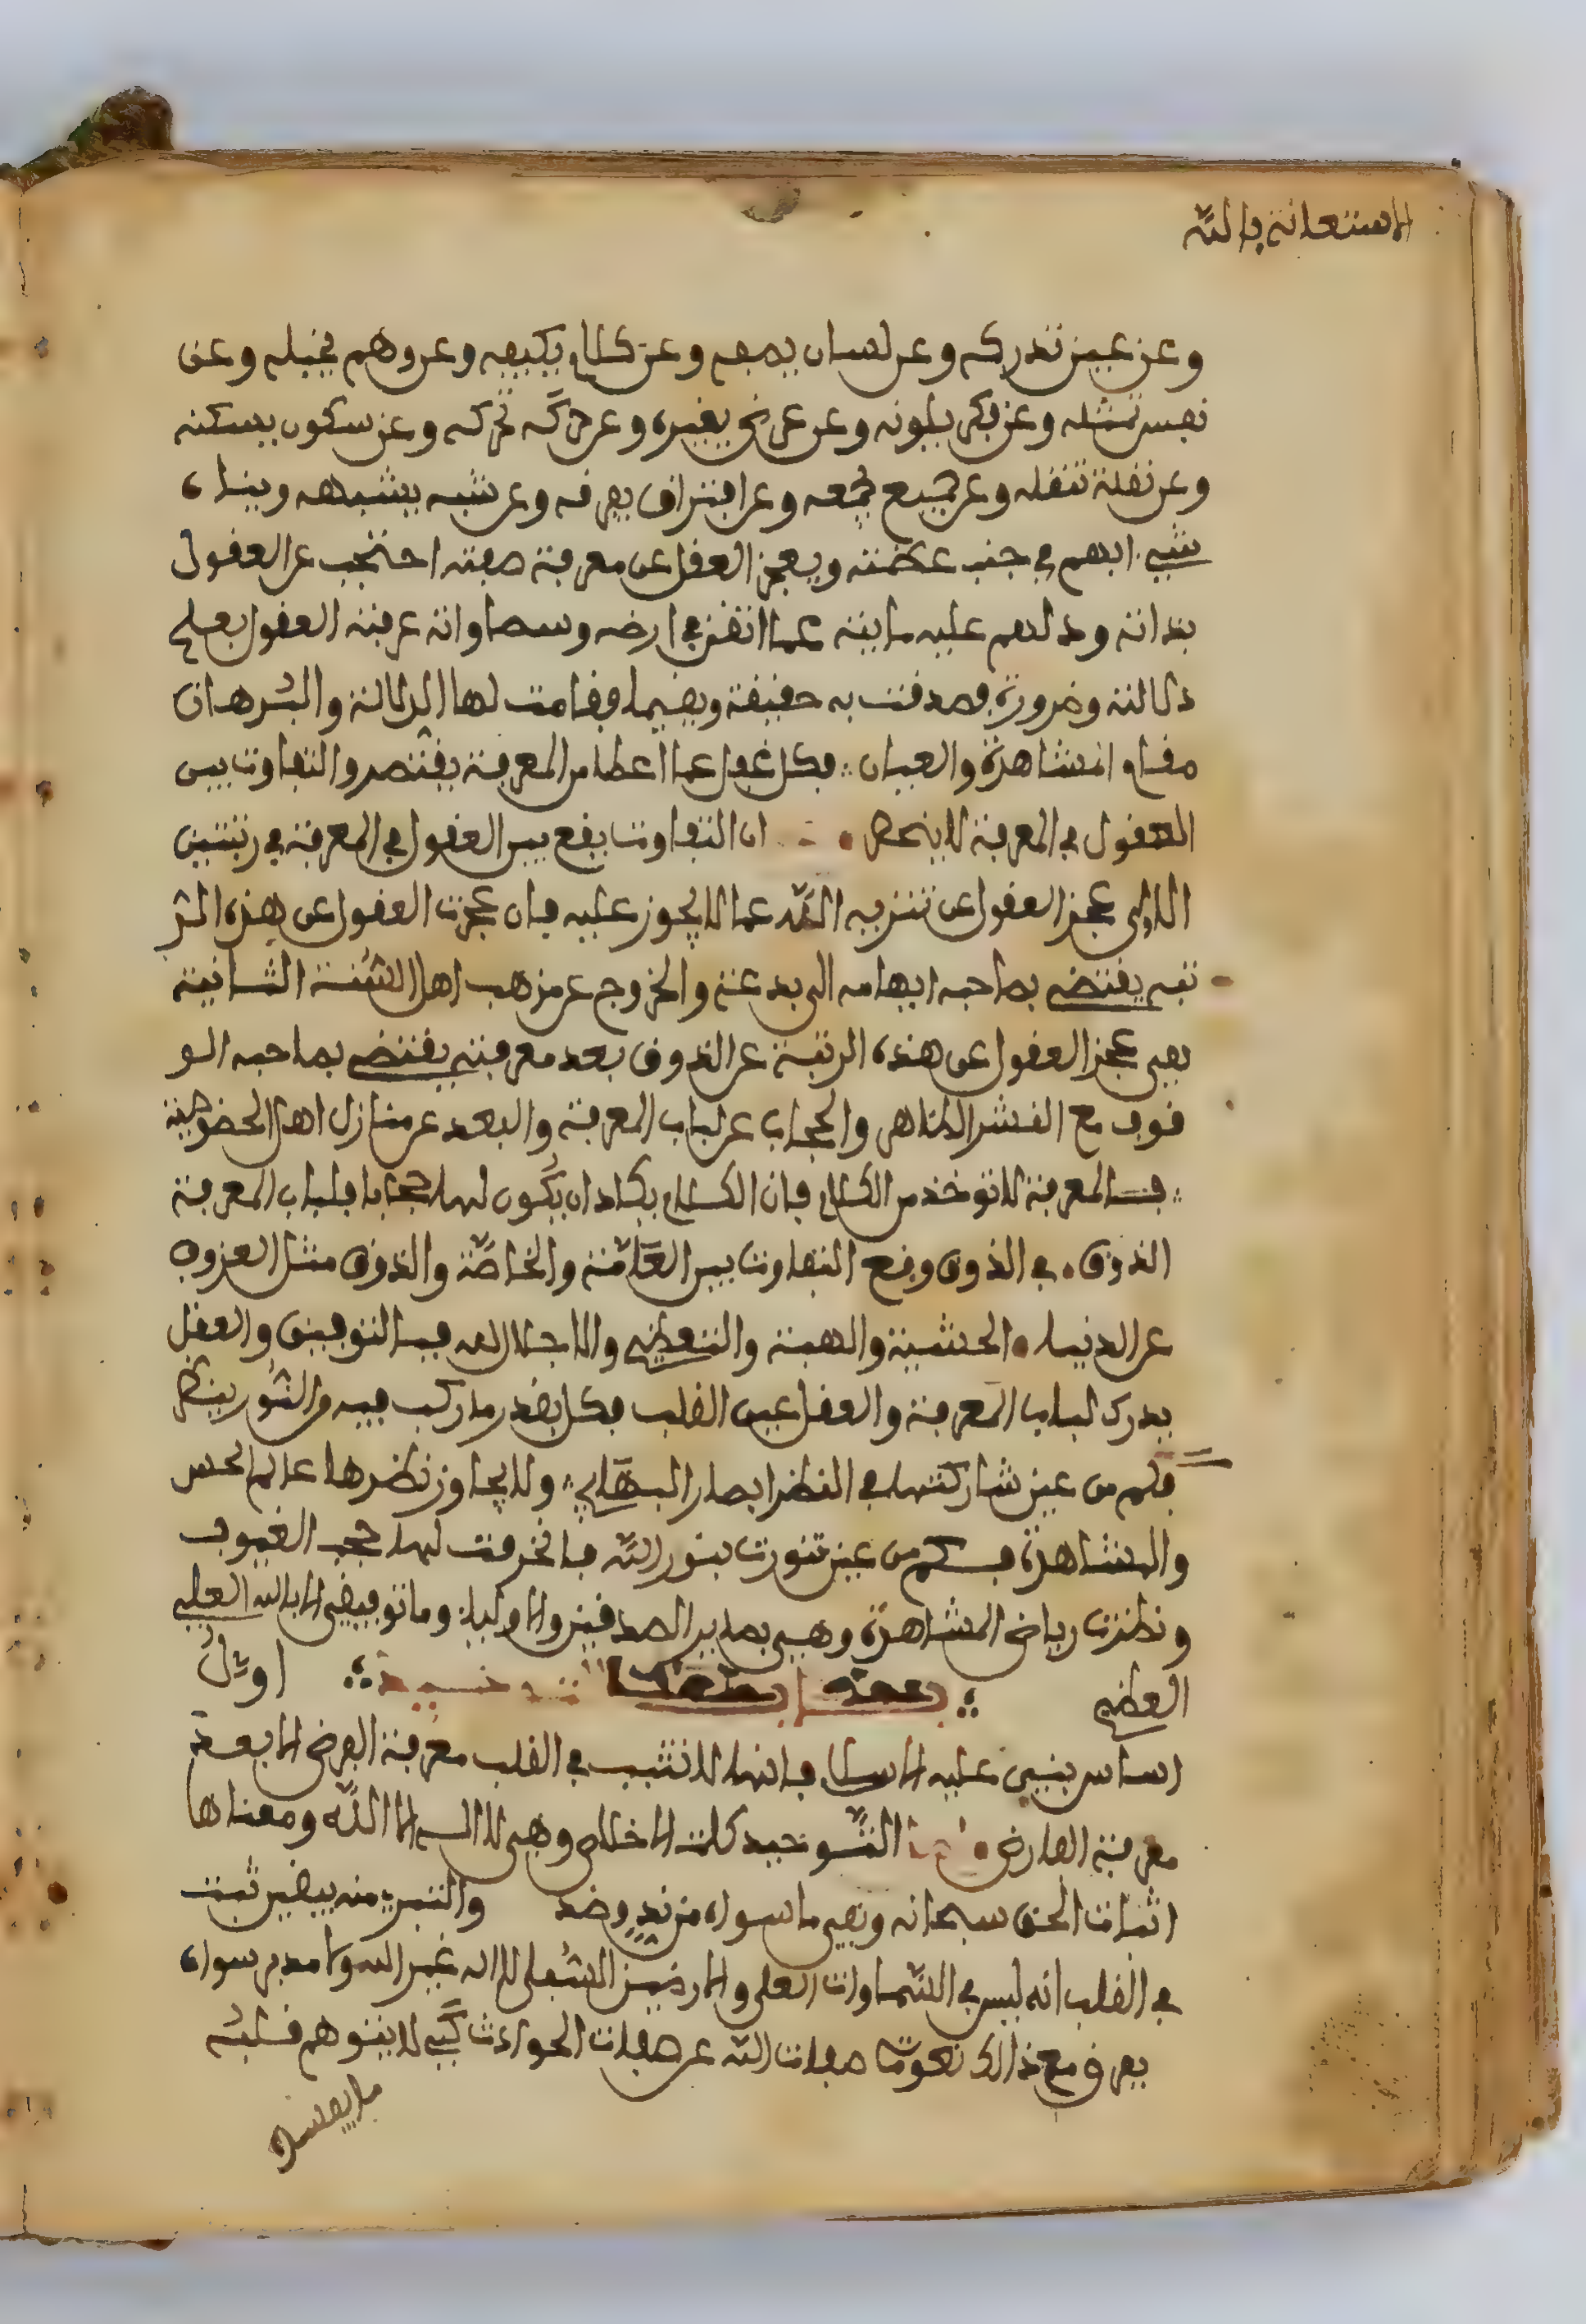 الاستعانة بالله
وعن عين تدركه وعن لسان يصفه وعن كلام يكيفه وعن وهم يخيله وعن
نفس تمثله وعن فكر يلونه وعن عرض يغيره وعن حركة تحركه وعن سكون يسكنه
وعن نقلة تنقله وعن جميع يجمعه وعن افتراق يفرقه وعن شبه يشبهه
شيء ابهم في جنب عظمته ويعجز العقل عن معرفة صفته احتجب عن العقول
بذاته ودلهم عليه ما بينه عما اتقن في ارضه وسماواته عرفته العقول بعلم
دلالته وضرورة فصدقت به حقيقة ويقينا وقامت لها الدلالة والبرهان
مقام المشاهدة والعيان فكل عقل عما اعطا من المعرفة يقتصر والتفاوت بين
العقول في المعرفة لا ينحصر ان التفاوت يقع بين العقول في المعرفة في رتبتين
الاولى عجز العقول عن تنزيه الله عما لا يجوز عليه فان عجزت العقول عن هذه المر
تبه يقتضي بصاحبه ابهامه الى بدعة والخروج عن مذهب اهل السنة الثانية
بقي عجز العقول عن هذه الرتبة عن الذوق بعد معرفته يقتضي بصاحبه الو
قوف مع القشر الظاهر والحجاب عن لباب المعرفة والبعد عن منازل اهل الخصوصية
فالمعرفة لا توخذ من الكلام فان الكلام يكاد ان يكون لها حجابا فلباب المعرفة
الذوق في الذوق وقع التفاوت بين العامة والخاصة والذوق مثل العزوف
عن الدنيا والخشية والهيبة والتعظيم والاجلال لله فبالتوفيق والعقل
يدرك لباب المعرفة والعقل عين القلب فكل بقدر ما ركب فيه من النور ينظر
فكم من عين شاركتها في النظر ابصار البهايم ولا يجاوز نظرها عالم الحس
والمشاهدة فكم من عين تنورت بنور الله فانخرقت لها حجب الغيوب
ونظرت رياض المشاهدة وهي بصاير الصدقين والاولياء وما توفيقي الا بالله العلي
العظيم اول
اساس ينبني عليه الاسلام فانها لا تثبت في القلب معرفة الفرض الا بعد
معرفة الفارض التوحيد كلمة الاخلاص وهي لا اله الا الله ومعناها
اثبات الحق سبحانه ونفي ما سواه من ند وضد والتبري منه بيقين ثبت
في القلب انه ليس في السماوات العلى والارضين السفلى اله غير الله ولا مدبر سواه
يعرف مع ذالك نعوت صفات الله عن صفات الحوادث كي لا يتوهم قلبه